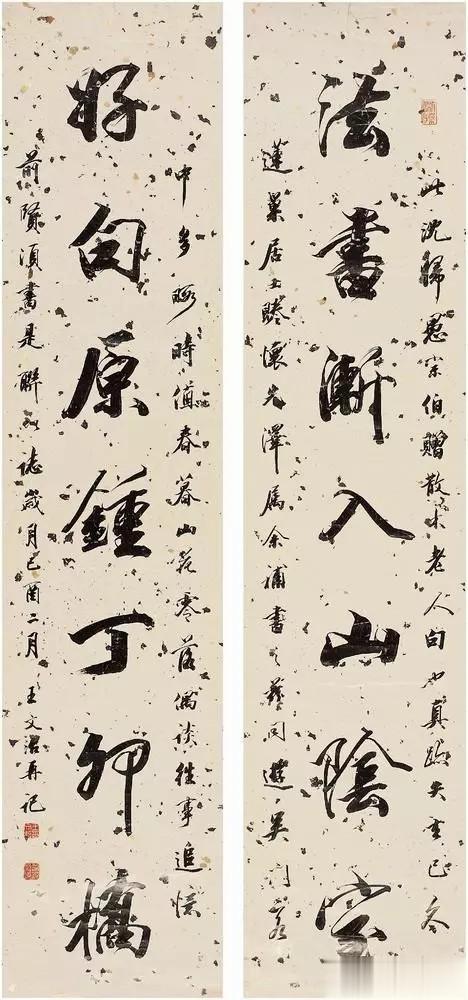 此沈歸愚宗伯贈散木老人句也真跡失去已久
法書漸入山陰室
蓬巢居士睠懷先澤屬余補書之茲同遊吳門
中多暇時值春暮山花零落偶談往事追憶
好句原鍾丁卯橋
前賢須書是聯以誌歲月己酉二月王文治再記